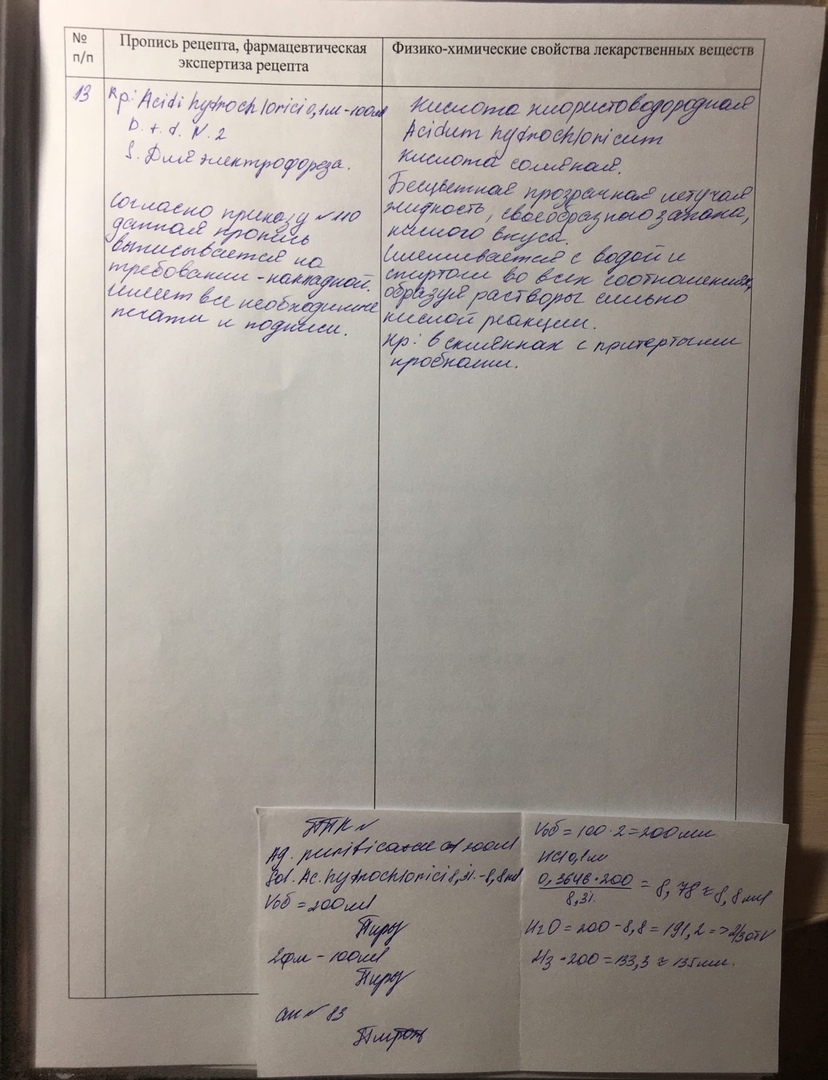 № п/п
Пропись рецепта, фармацевтическая экспертиза рецепта
Физико-химические свойства лекарственных веществ
13
Rp: Acidi hydrochlorici 0,1м - 100ml
D. t. d. N. 2
S. Для электрофореза.
Согласно приказу №110
данная пропись
выписывается на
требовании-накладной.
Имеет все необходимые
печати и подписи.
Кислота хлористоводородная
Acidum hydrochloricum
Кислота соляная.
Бесцветная прозрачная летучая
жидкость, своеобразного запаха,
кислого вкуса.
Смешивается с водой и
спиртом во всех соотношениях,
образуя растворы сильно
кислой реакции.
Хр: в склянках с притертыми
пробками.
ППК №
Aq. purificatae ad 200ml
Sol. Ac. hydrochlorici 8,3% - 8,8ml
Vоб = 200ml
2фл - 100ml
ан № 83
Vоб = 100 · 2 = 200мл
HCl 0,1м
0,3646 · 200
8,3%
= 8,78 ≈ 8,8ml
H2O = 200 - 8,8 = 191,2 => 2/3 от V
2/3 · 200 = 133,3 ≈ 135мл.